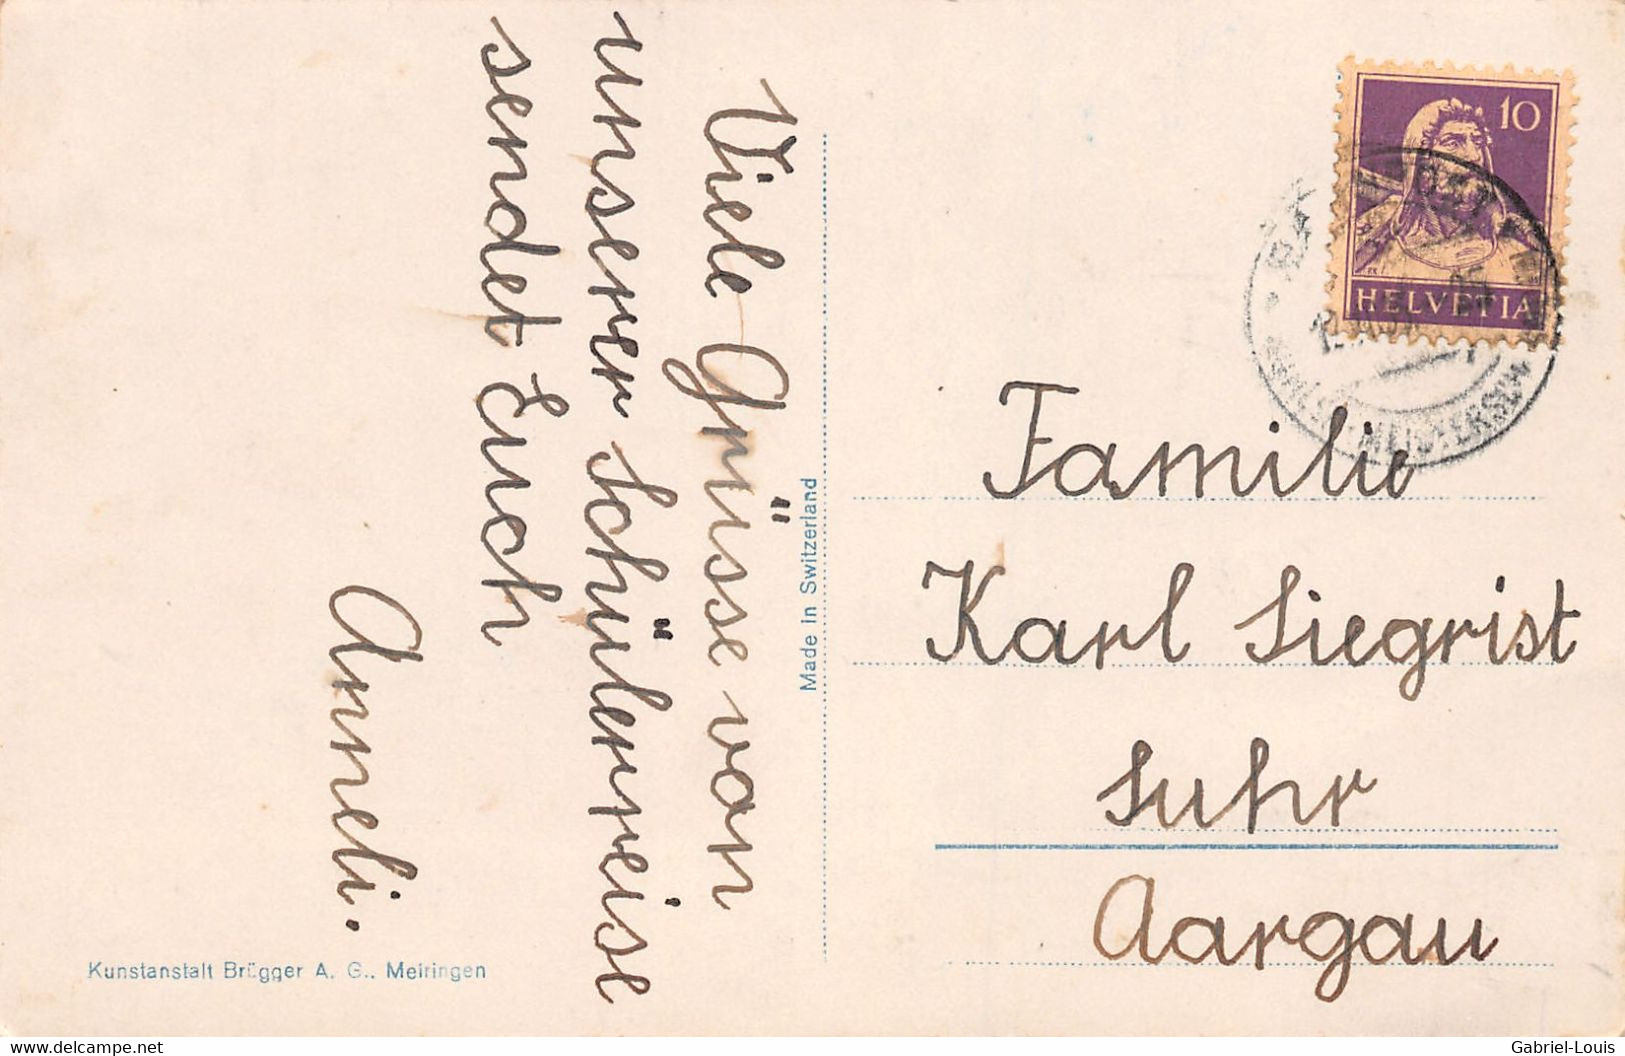 Viele Grüsse von
unserer Schülerreise
sendet Euch
Anneli.
Kunstanstalt Brügger A. G., Meiringen
Made in Switzerland
10
HELVETIA
Familie
Karl Siegrist
Suhr
Aargau
www.delcampe.net
Gabriel-Louis